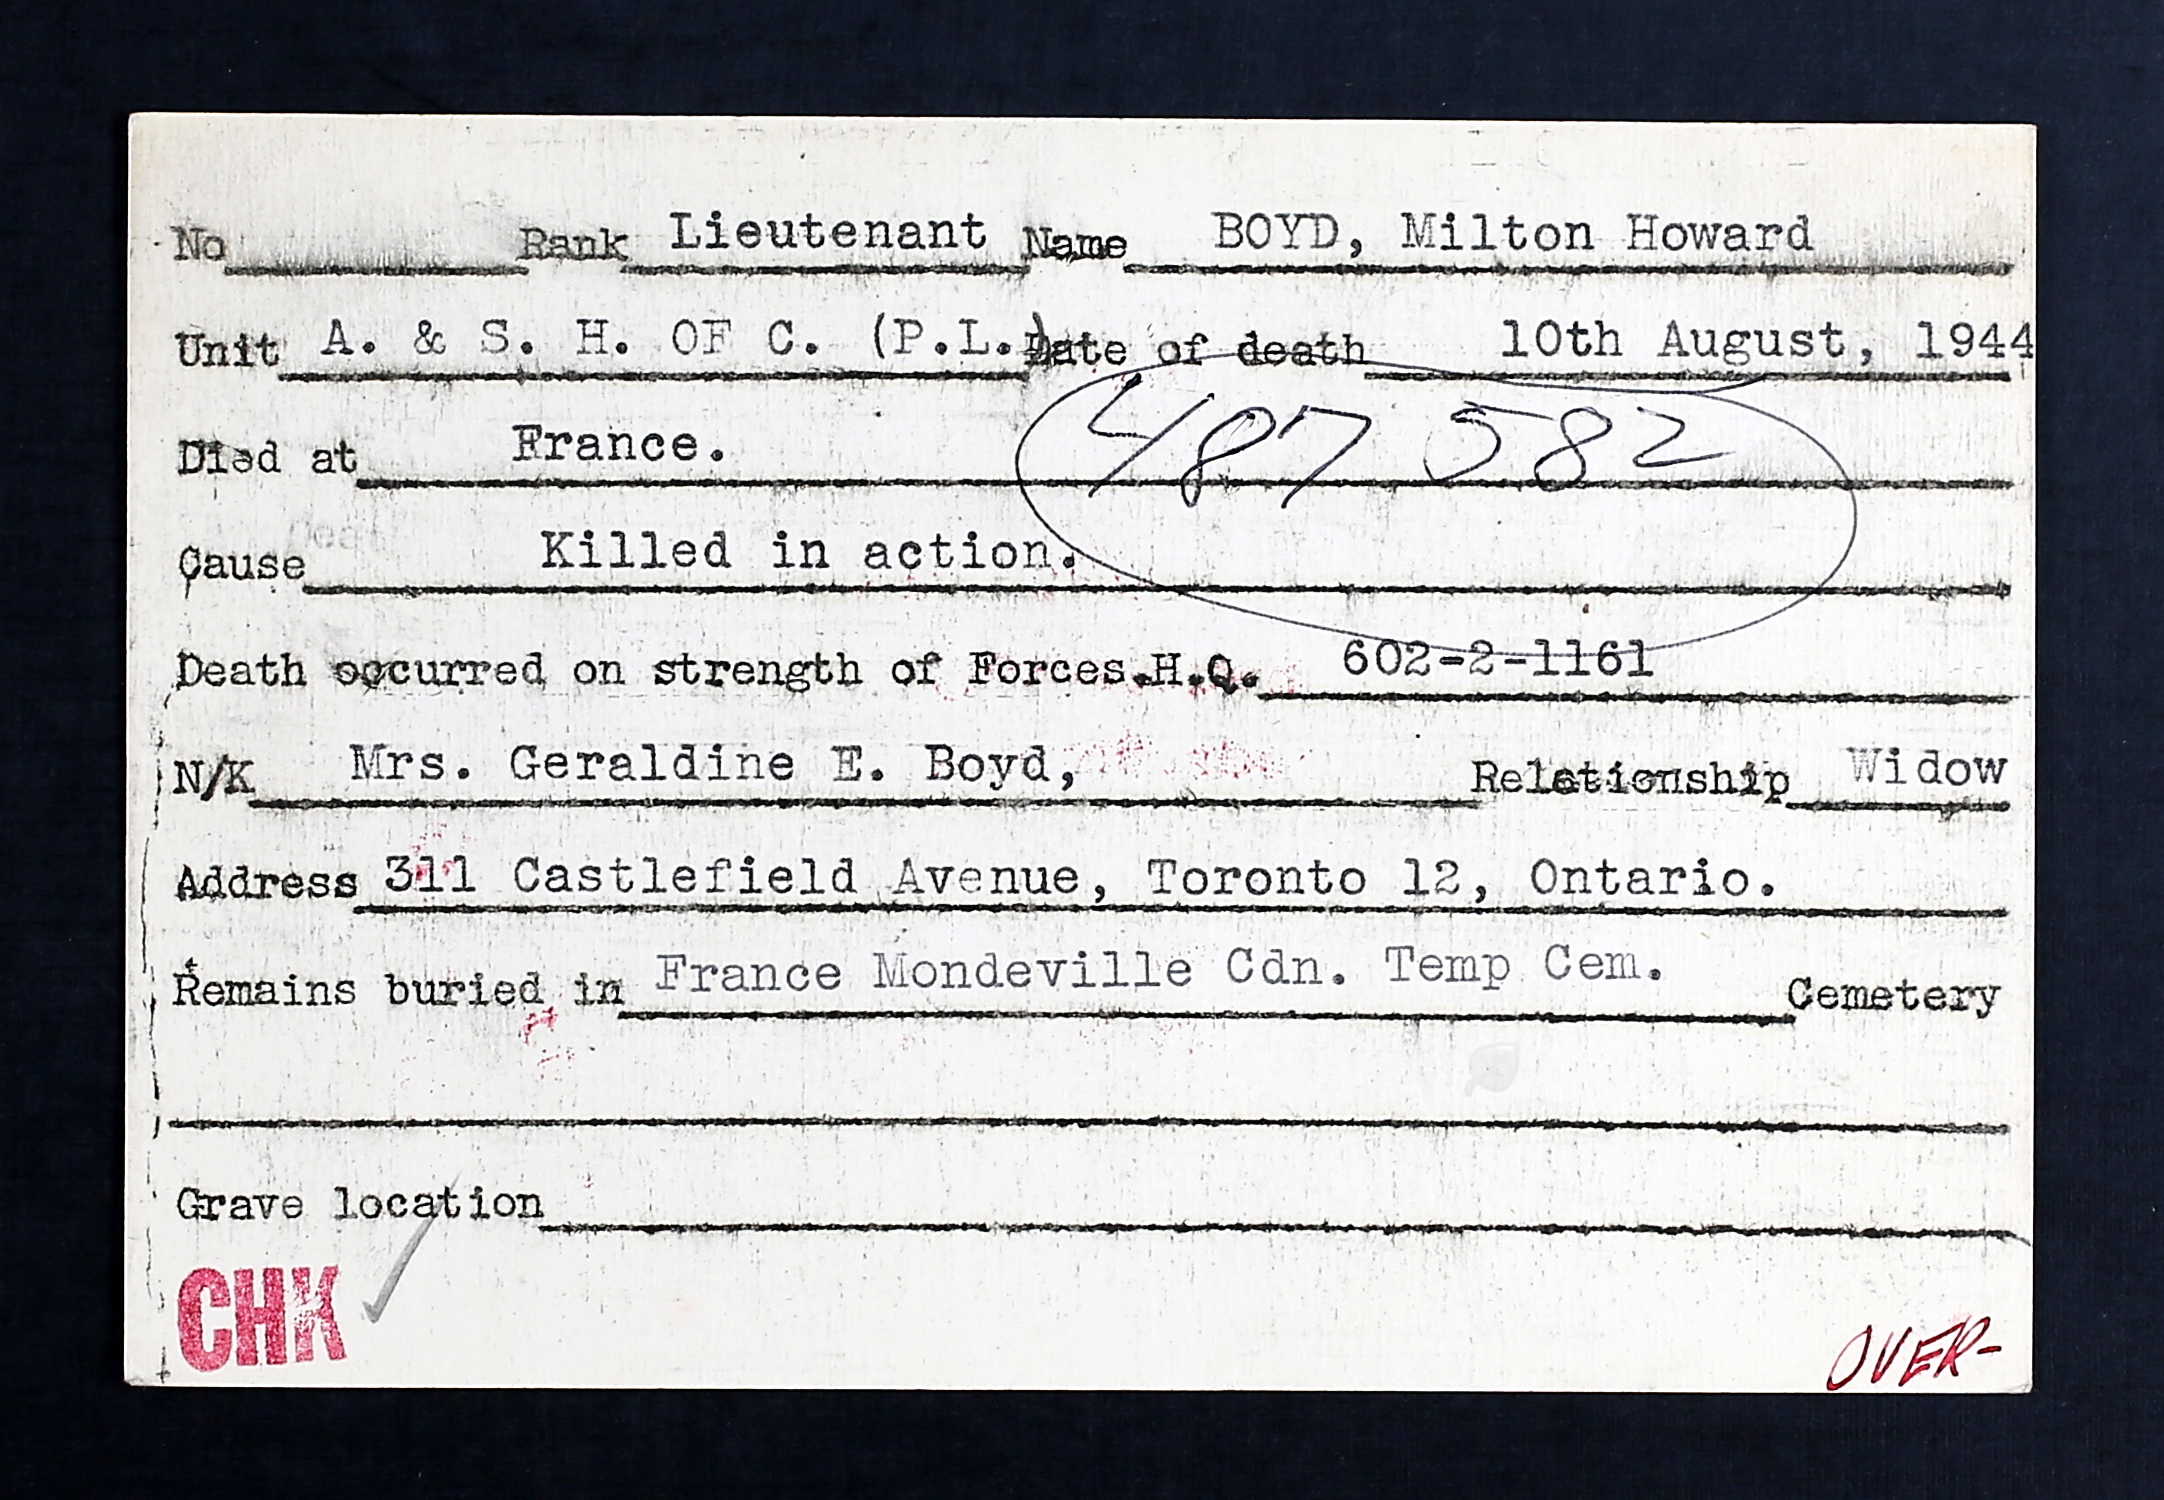 No Rank Lieutenant Name BOYD, Milton Howard
Unit A. & S. H. OF C. (P.L.) Date of death 10th August, 1944
487 582
Died at France.
Cause Killed in action.
Death occurred on strength of Forces.H.Q. 602-2-1161
N/K Mrs. Geraldine E. Boyd, Relationship Widow
Address 311 Castlefield Avenue, Toronto 12, Ontario.
Remains buried in France Mondeville Cdn. Temp Cem. Cemetery
Grave location
CHK
OVER-